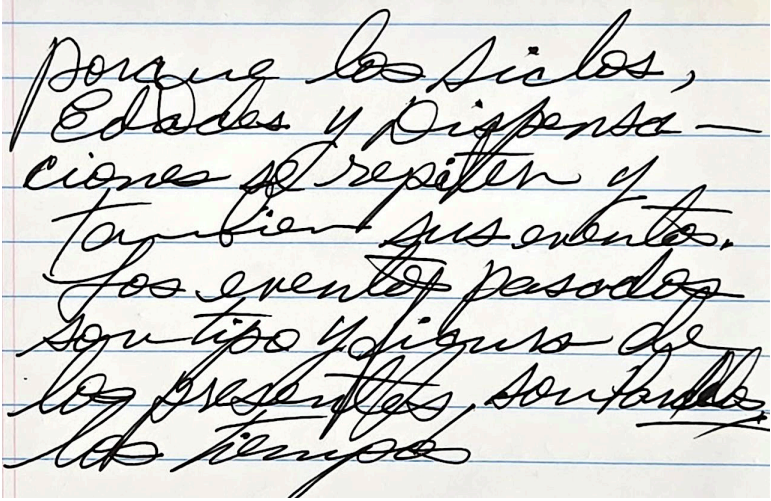 porque los siclos,
Edades y Dispensa-
ciones se repiten y
tambien sus eventos.
Los eventos pasados
son tipo y figura de
los presentes, son
los tiempos